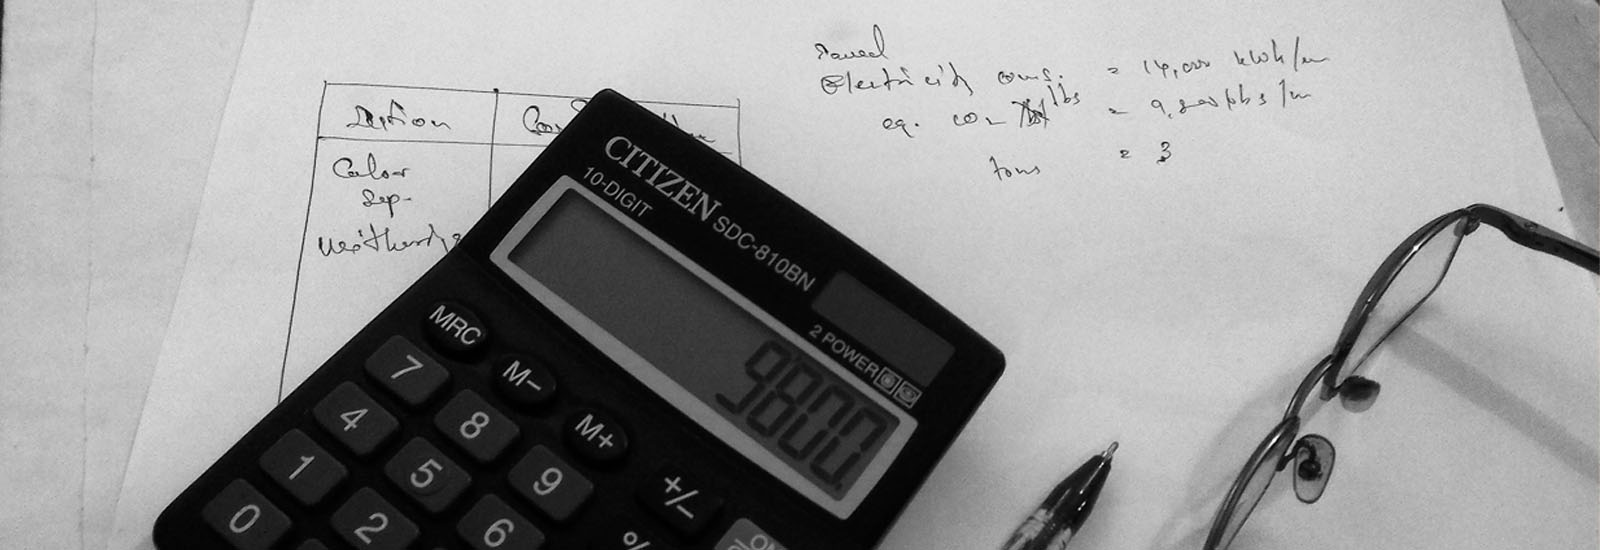 saved
Electricity cons. = 14,000 kWh/m
eq. co2 lbs = 9,800 lbs/m
tons = 3
Section
Colour
Sep.
CITIZEN SDC-810BN
10-DIGIT
2 POWER
9800.
MRC M- M+ +/-
7 8 9 %
4 5 6
1 2
0